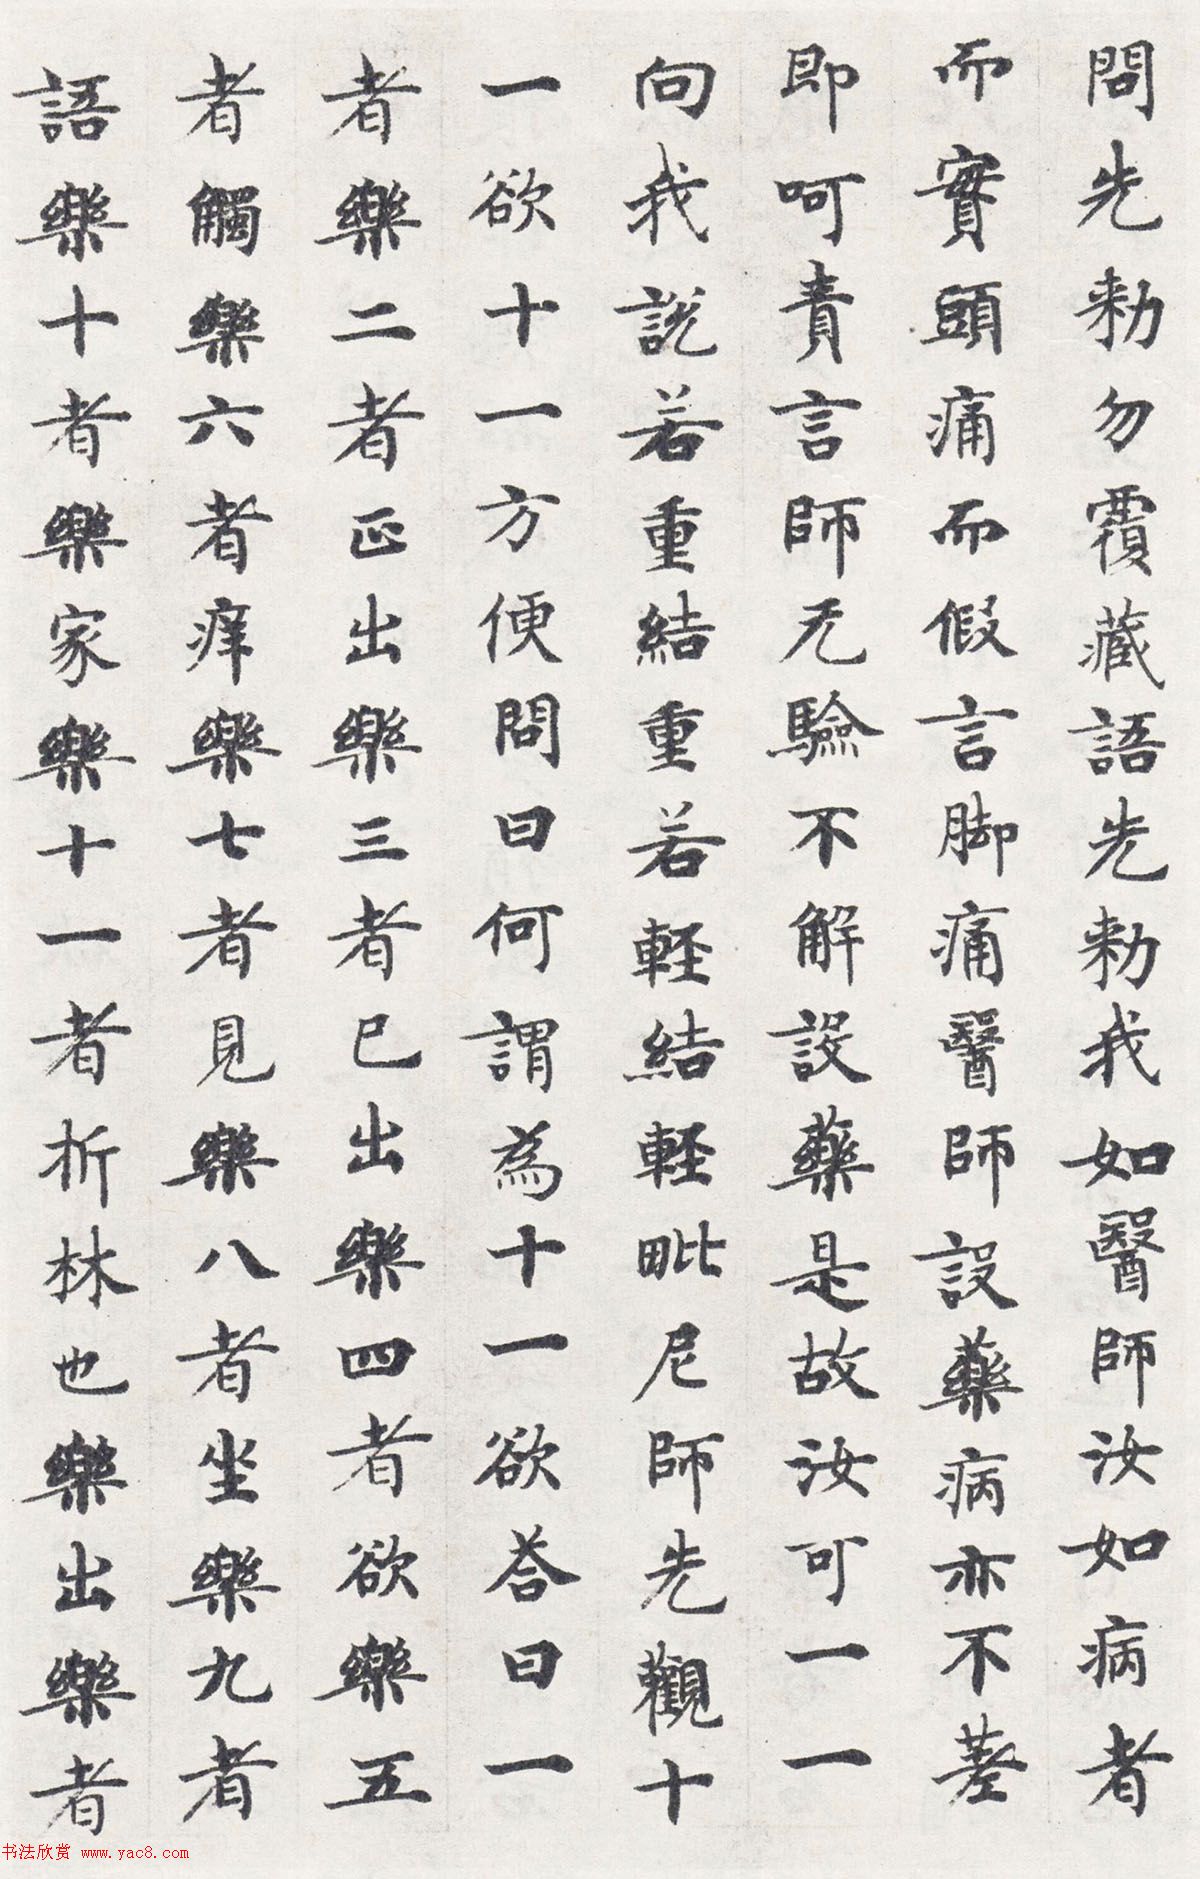 問先勑勿覆藏語先勑我如醫師汝如病者
而實頭痛而假言脚痛醫師設藥病亦不差
即呵責言師无驗不解設藥是故汝可一一
向我說若重結重若軽結軽毗尼師先觀十
一欲十一方便問曰何謂為十一欲荅曰一
者樂二者正出樂三者已出樂四者欲樂五
者觸樂六者痒樂七者見樂八者坐樂九者
語樂十者樂家樂十一者折林也樂出樂者
书法欣赏 www.yac8.com